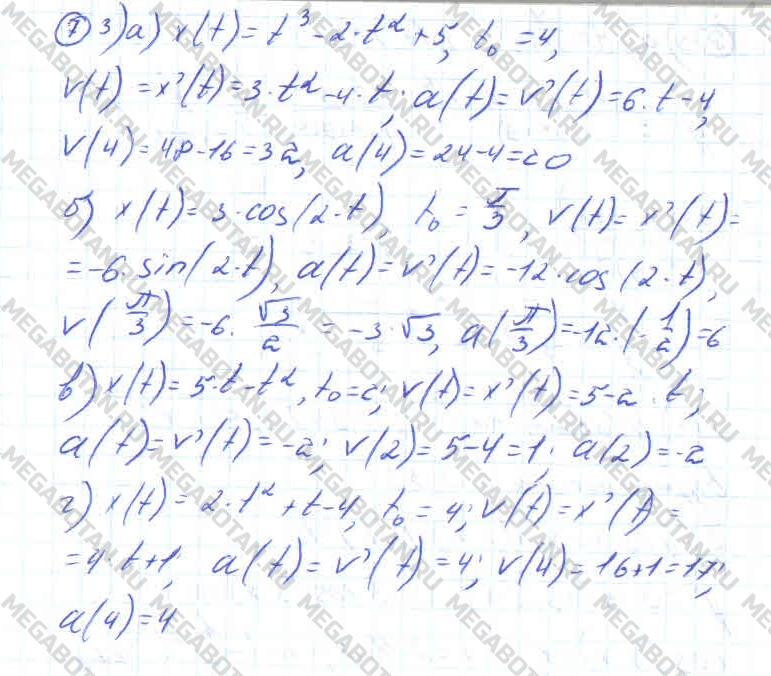 7 3) а) x(t) = t³ - 2·t² + 5, t₀ = 4,
v(t) = x'(t) = 3·t² - 4·t; a(t) = v'(t) = 6·t - 4,
v(4) = 48 - 16 = 32, a(4) = 24 - 4 = 20
б) x(t) = 3·cos(2·t), t₀ = π/3, v(t) = x'(t) =
= -6·sin(2·t), a(t) = v'(t) = -12·cos(2·t),
v(π/3) = -6·√3/2 = -3·√3, a(π/3) = -12·(-1/2) = 6
в) x(t) = 5·t - t², t₀ = 2; v(t) = x'(t) = 5 - 2·t;
a(t) = v'(t) = -2; v(2) = 5 - 4 = 1; a(2) = -2
г) x(t) = 2·t² + t - 4, t₀ = 4; v(t) = x'(t) =
= 4·t + 1; a(t) = v'(t) = 4; v(4) = 16 + 1 = 17;
a(4) = 4
MEGABOTAN.RU